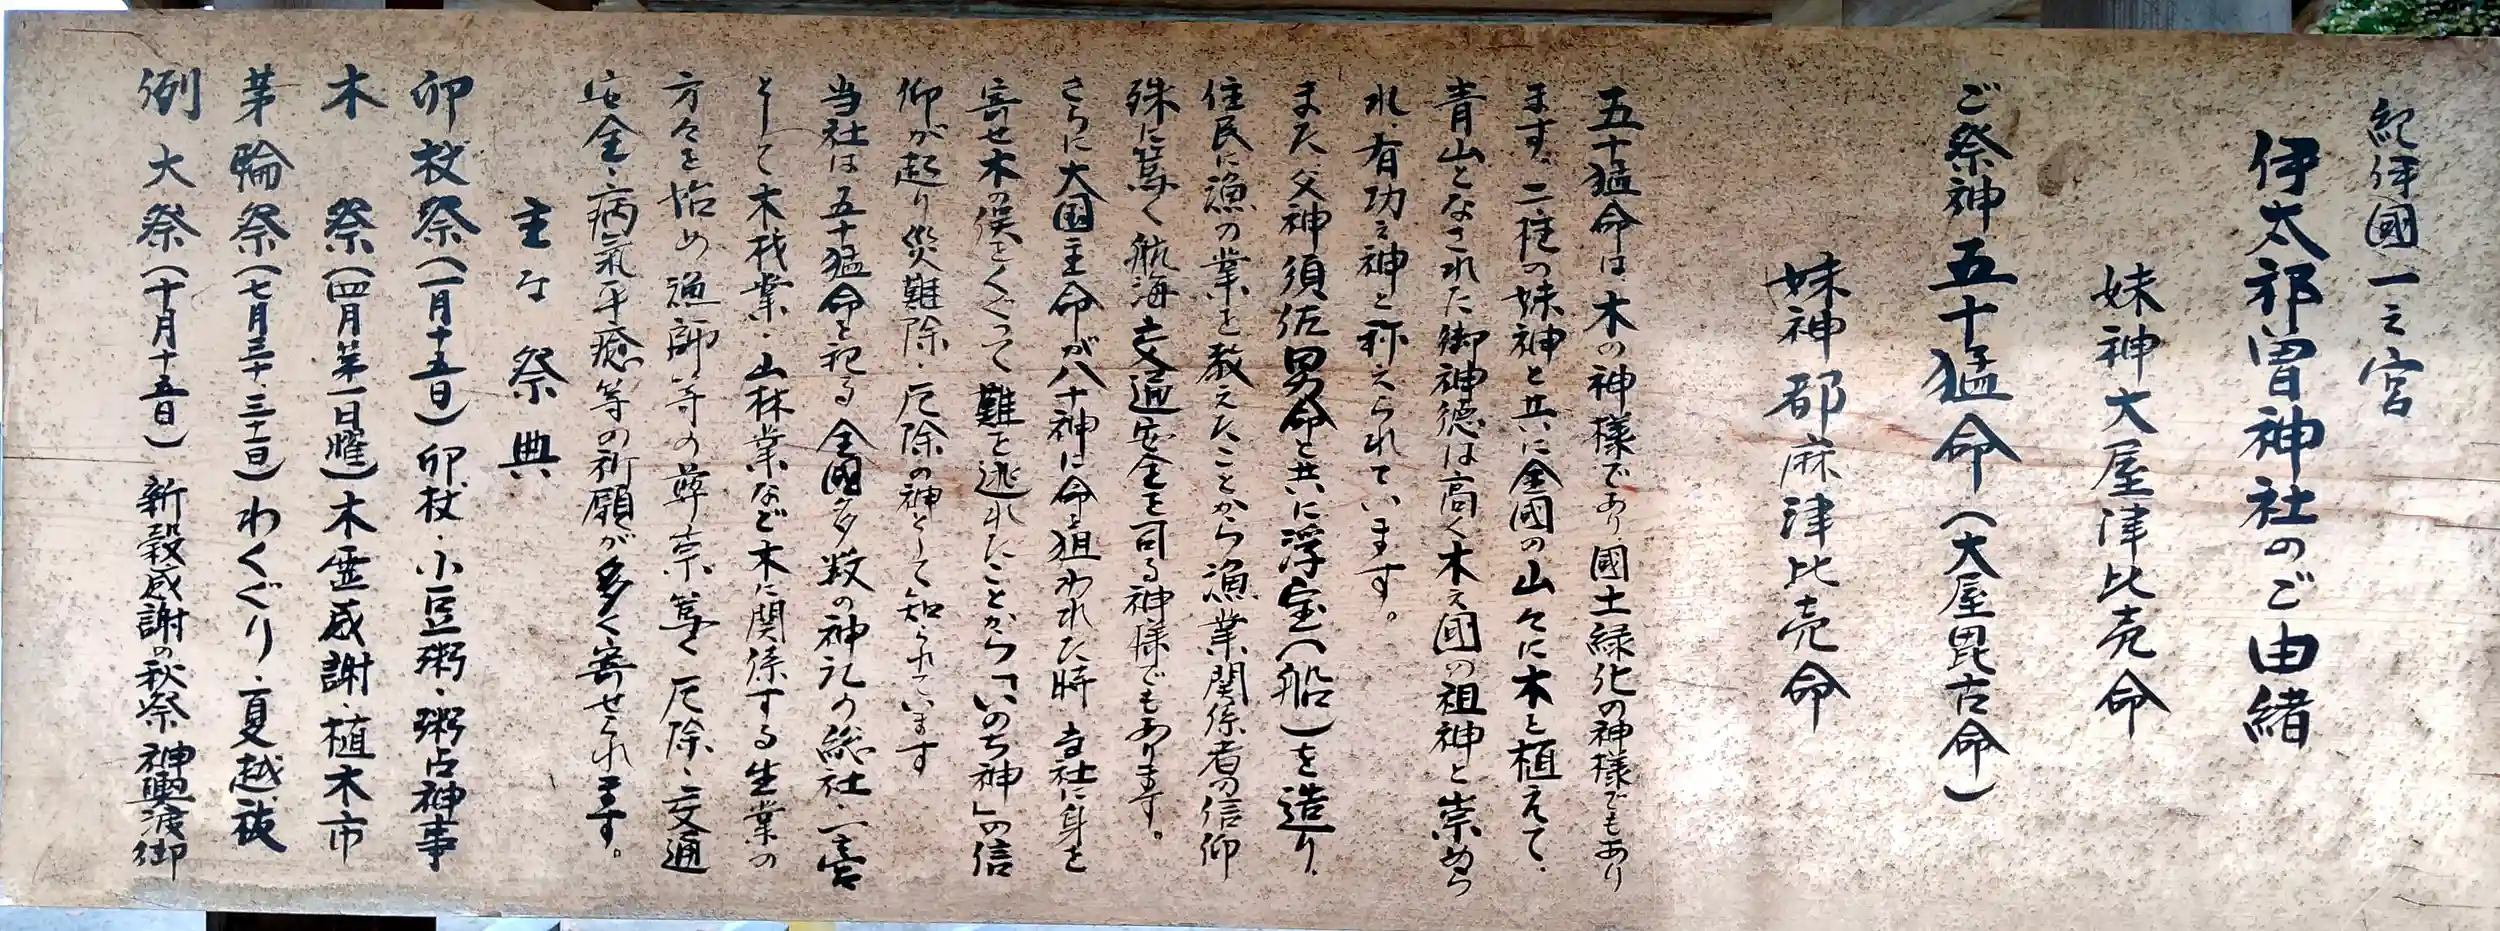 紀伊國一之宮
伊太祁曽神社のご由緒
妹神大屋津比売命
ご祭神五十猛命(大屋毘古命)
妹神都麻津比売命
五十猛命は木の神様であり國土緑化の神様でもあり
ます。二柱の妹神と共に全國の山々に木を植えて、
青山となされた御神徳は高く木之國の祖神と崇めら
れ、有功之神と称えられています。
また、父神須佐男命と共に浮宝(船)を造り、
住民に漁の業を教えたことから漁業関係者の信仰
殊に篤く航海交通安全を司る神様でもあります。
さらに大国主命が八十神に命を狙われた時 当社に身を
寄せ木の俣をくぐって難を逃れたことから「いのち神」の信
仰が起り災難除・厄除の神として知られています
当社は五十猛命を祀る全國多数の神社の総社・一宮
として木材業・山林業など木に関係する生業の
方々を始め漁師等の尊崇篤く厄除・交通
安全・病氣平癒等の祈願が多く寄せられます。
主な祭典
卯杖祭(一月十五日)卯杖・小豆粥・粥占神事
木祭(四月第一日曜)木霊感謝・植木市
茅輪祭(七月三十、三十一日)わくぐり・夏越祓
例大祭(十月十五日) 新穀感謝の秋祭 神輿渡御